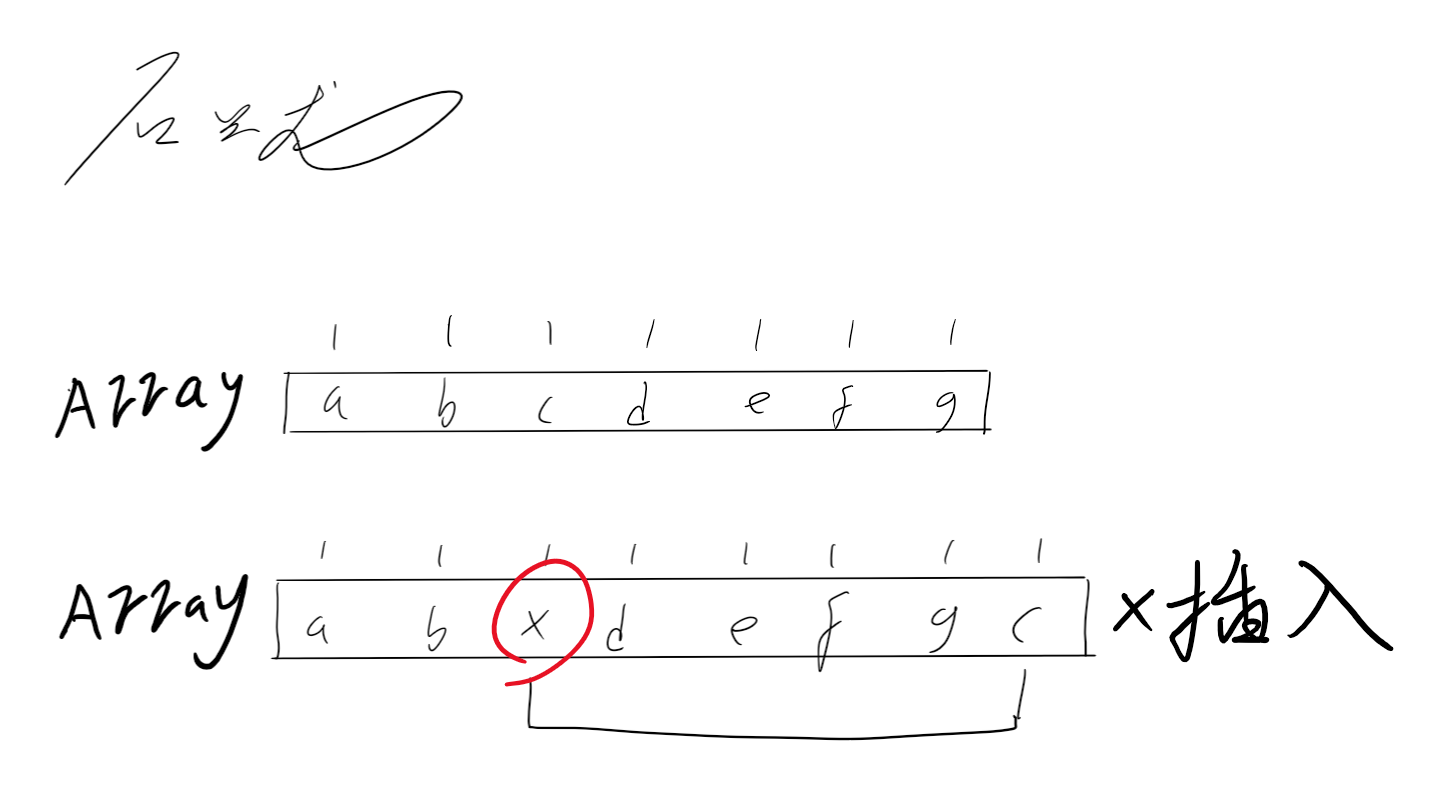 Array a b c d e f g
Array a b x d e f g c x插入